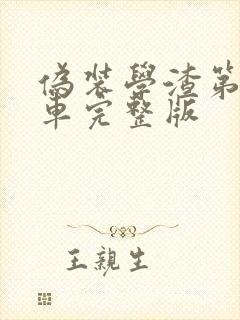 偽装學渣第
車完整版
王親生